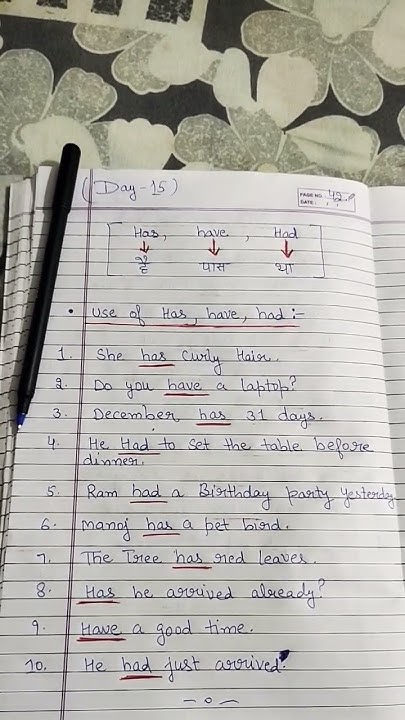 (Day-15)
PAGE NO.: 42
DATE: / /
Has, have, Had
है पास था
• use of Has, have, had :-
1. She has curly Hair.
2. Do you have a laptop?
3. December has 31 days.
4. He Had to set the table before
dinner.
5. Ram had a Birthday party yesterday
6. manoj has a pet bird.
7. The Tree has red leaves.
8. Has he arrived already?
9. Have a good time.
10. He had just arrived.
—o—